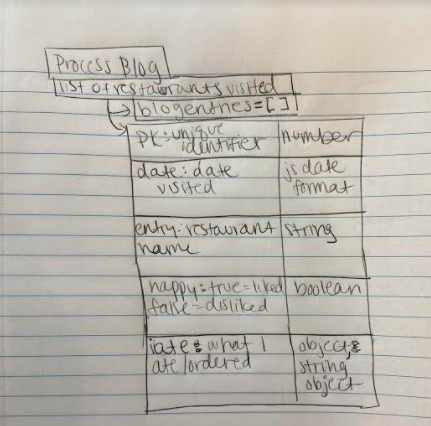 Process Blog
list of restaurants visited
blogentries = [ ]
PK: unique identifier number
date: date visited js date format
entry: restaurant name string
happy: true = liked false = disliked boolean
iate: what I ate/ordered object & string object